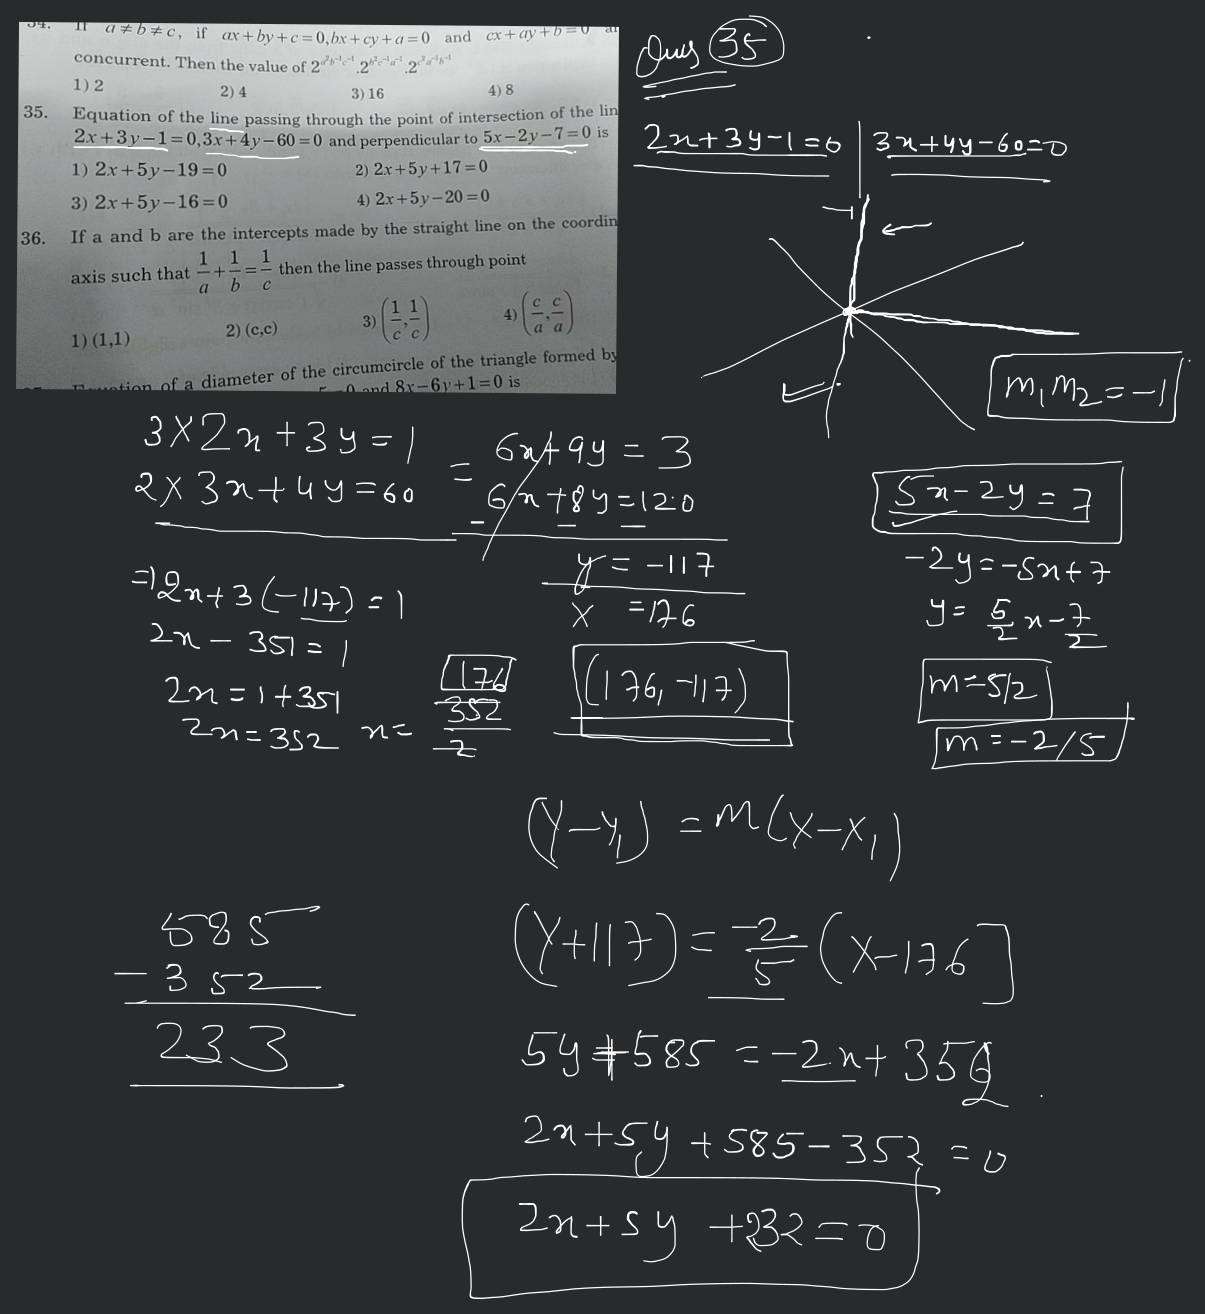 34. If a≠b≠c, if ax+by+c=0, bx+cy+a=0 and cx+ay+b=0 ar
concurrent. Then the value of 2^{a²b⁻¹c⁻¹}.2^{b²c⁻¹a⁻¹}.2^{c²a⁻¹b⁻¹}
1) 2 2) 4 3) 16 4) 8
35. Equation of the line passing through the point of intersection of the lin
2x+3y−1=0, 3x+4y−60=0 and perpendicular to 5x−2y−7=0 is
1) 2x+5y−19=0 2) 2x+5y+17=0
3) 2x+5y−16=0 4) 2x+5y−20=0
36. If a and b are the intercepts made by the straight line on the coordin
axis such that 1/a + 1/b = 1/c then the line passes through point
1) (1,1) 2) (c,c) 3) (1/c, 1/c) 4) (c/a, c/a)
of a diameter of the circumcircle of the triangle formed by
=0 and 8x−6y+1=0 is
Ques 35
2x+3y-1=0 | 3x+4y-60=0
m₁m₂=-1
3×2x+3y=1
2×3x+4y=60
= 6x+9y=3
6x+8y=120
- - -
y=-117
x =176
(176,-117)
⇒2x+3(-117)=1
2x-351=1
2x=1+351
2x=352 x= 352/2
176
5x-2y=7
-2y=-5x+7
y= 5/2 x - 7/2
m=5/2
m=-2/5
(y-y₁) =m(x-x₁)
(y+117)= -2/5 (x-176]
5y+585 =-2x+352
2x+5y+585-352 =0
2x+5y +232=0
585
-352
233